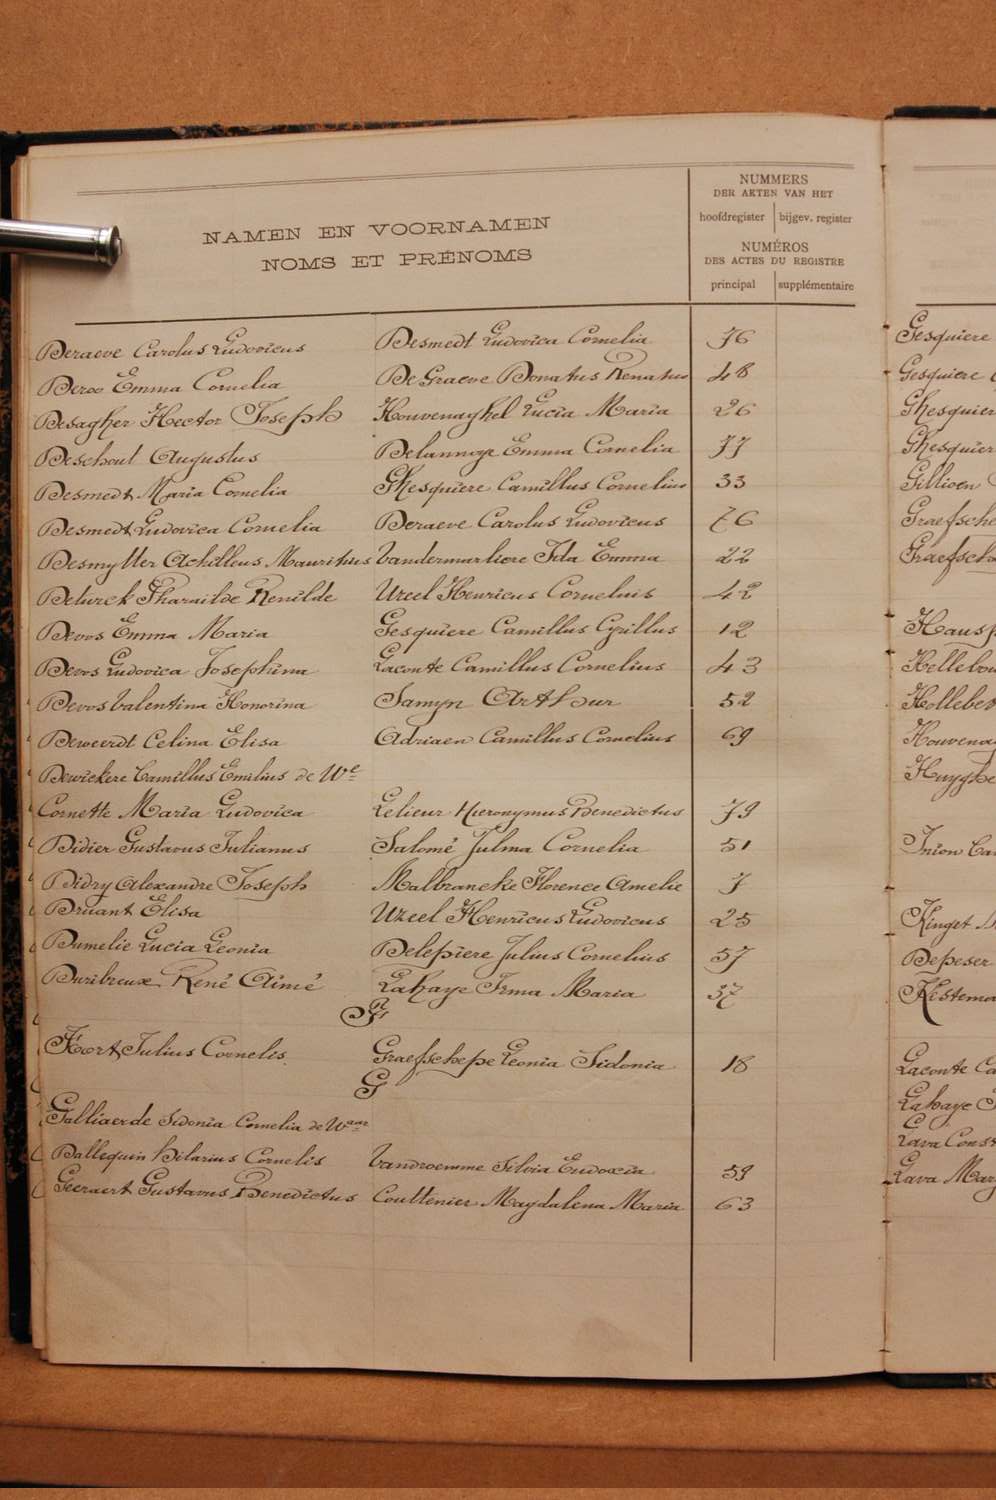 NAMEN EN VOORNAMEN
NOMS ET PRÉNOMS
NUMMERS
DER AKTEN VAN HET
hoofdregister bijgev. register
NUMÉROS
DES ACTES DU REGISTRE
principal supplémentaire
Deraeve Carolus Ludovicus Desmedt Ludovica Cornelia 76
Deroo Emma Cornelia De Graeve Donatus Renatus 48
Desagher Hector Joseph Houvenaghel Lucia Maria 26
Deschout Augustus Delannoye Emma Cornelia 77
Desmedt Maria Cornelia Ghesquiere Camillus Cornelius 33
Desmedt Ludovica Cornelia Deraeve Carolus Ludovicus 76
Desmytter Achilleus Mauritius Vandermarliere Ida Emma 22
Deturck Pharailde Renilde Uzeel Henricus Cornelius 42
Devos Emma Maria Gesquiere Camillus Cyrillus 12
Devos Ludovica Josephina Laconte Camillus Cornelius 43
Devos Valentina Honorina Samyn Arthur 52
Deweerdt Celina Elisa Adriaen Camillus Cornelius 69
Dewickere Camillus Emilius de We
Cornette Maria Ludovica Lelieur Hieronymus Benedictus 79
Didier Gustavus Julianus Salomé Julma Cornelia 51
Didry Alexandre Joseph Malbrancke Florence Amelie 7
Druant Elisa Uzeel Henricus Ludovicus 25
Dumelie Lucia Leonia Delepiere Julius Cornelius 57
Duribreux René Aimé Lahaye Irma Maria 37
F
Foort Julius Cornelis Graefschepe Leonia Sidonia 18
G
Galliaerde Sidonia Cornelia de Waar
Dallequin Hilarius Cornelis Vandroemme Silvia Eudoxia 59
Geeraert Gustavus Benedictus Couttenier Magdalena Maria 63
Gesquiere
Gesquiere
Ghesquier
Ghesquier
Gillioen
Graefsche
Graefsche
Hausp
Hellebou
Hollebek
Houvena
Huyghe
Inion Ca
Kinget
Depeser
Kestema
Laconte Ca
Lahaye
Lava Const
Lava Mar